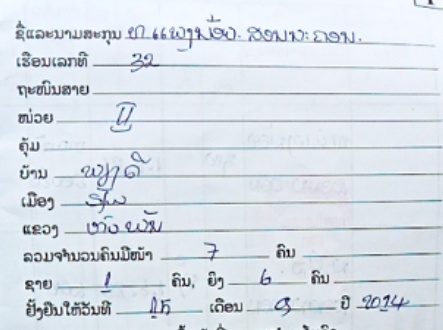 ຊື່ແລະນາມສະກຸນ ທ. ແພງນ້ອຍ.
ເຮືອນເລກທີ 32
ຖະໜົນສາຍ
ໜ່ວຍ II
ຄຸ້ມ
ບ້ານ
ເມືອງ
ແຂວງ ຫົວພັນ
ລວມຈຳນວນຄົນມີໜ້າ 7 ຄົນ
ຊາຍ 1 ຄົນ, ຍິງ 6 ຄົນ
ຢັ້ງຢືນໃຫ້ວັນທີ 15 ເດືອນ 9 ປີ 2014